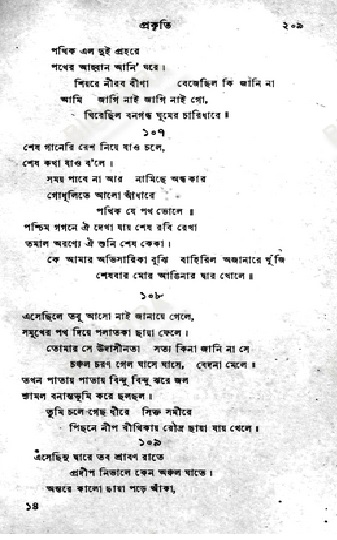 প্রকৃতি ২০৯
পথিক এল দুই প্রহরে
পথের আহ্বান আনি' ঘরে।
শিয়রে নীরব বীণা বেজেছিল কি জানি না
আমি জাগি নাই জাগি নাই গো,
ঘিরেছিল বনগন্ধ ঘুমের চারিধারে॥
১০৭
শেষ গানেরি রেশ নিয়ে যাও চলে,
শেষ কথা যাও ব'লে।
সময় পাবে না আর নামিছে অন্ধকার
গোধূলিতে আলো আঁধারে
পথিক যে পথ ভোলে॥
পশ্চিম গগনে ঐ দেখা যায় শেষ রবি রেখা
তমাল অরণ্যে ঐ শুনি শেষ কেকা।
কে আমার অভিসারিকা বুঝি বাহিরিল অজানারে খুঁজি
শেষবার মোর আঙিনার দ্বার খোলে॥
১০৮
এসেছিলে তবু আসো নাই জানায়ে গেলে,
সমুখের পথ দিয়ে পলাতকা ছায়া ফেলে।
তোমার সে উদাসীনতা সত্য কিনা জানি না সে
চঞ্চল চরণ গেল ঘাসে ঘাসে, বেদনা মেলে॥
তখন পাতায় পাতায় বিন্দু বিন্দু ঝরে জল
শ্যামল বনান্তভূমি করে ছলছল।
তুমি চলে গেছ ধীরে সিক্ত সমীরে
পিছনে নীপ বীথিকায় রৌদ্র ছায়া যায় খেলে॥
১০৯
এসেছিনু দ্বারে তব শ্রাবণ রাতে
প্রদীপ নিভালে কেন অঞ্চল ঘাতে।
অন্তরে কালো ছায়া পড়ে আঁকা,
১৪